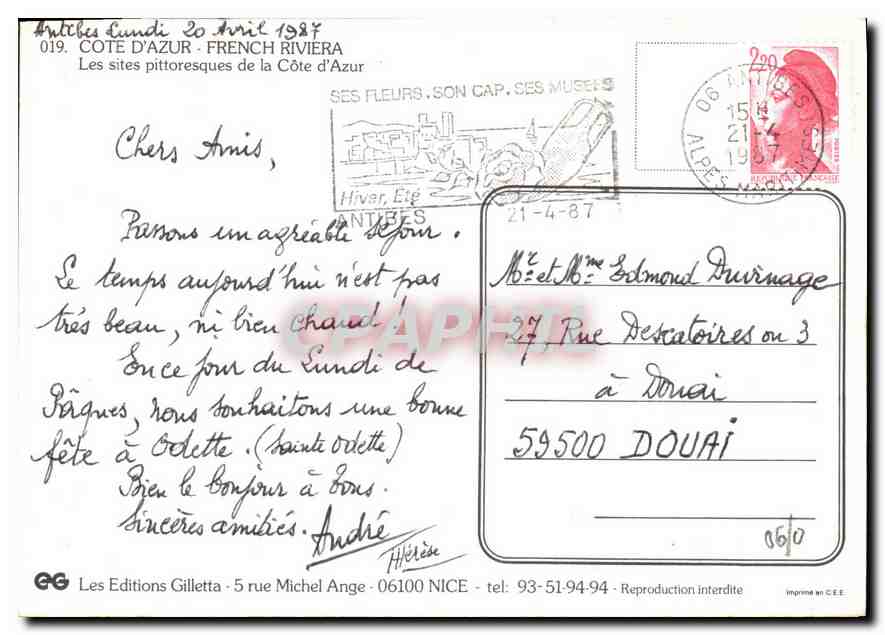 Antibes Lundi 20 Avril 1987
019. COTE D'AZUR - FRENCH RIVIERA
Les sites pittoresques de la Côte d'Azur
SES FLEURS. SON CAP. SES MUSEES
Hiver, Eté
ANTIBES
21-4-87
2,20
REPUBLIQUE FRANÇAISE
06 ANTIBES
15H
21-4
1987
ALPES MAR
Chers Amis,
Passons un agréable séjour.
Le temps aujourd'hui n'est pas
très beau, ni bien chaud !
En ce jour du Lundi de
Pâques, nous souhaitons une bonne
fête à Odette. (Sainte Odette)
Bien le bonjour à tous.
Sincères amitiés. André
Thérèse
Mr et Mme Edmond Duvinage
27, Rue Descatoires ou 3
à Douai
59500 DOUAI
06/0
CPAPHIL
EG Les Editions Gilletta - 5 rue Michel Ange - 06100 NICE - tel: 93-51-94-94 - Reproduction interdite
Imprimé en C.E.E.